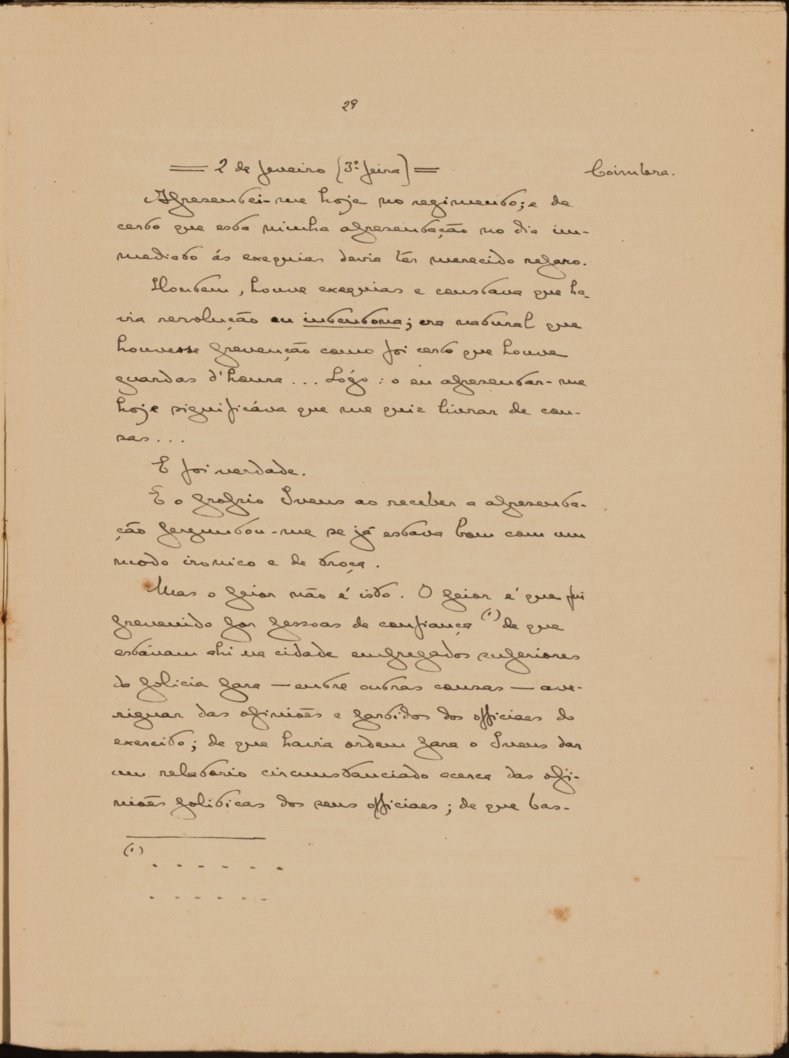 29
= 2 de fevereiro (3ª feira) = Coimbra.
Apresentei-me hoje no regimento; e de
certo que esta minha apresentação no dia im-
mediato ás exequias devia têr merecido reparo.
Hontem, houve exequias e constava que ha-
via revolução ou intentona; era natural que
houvesse prevenção como foi certo que houve
guardas d'honra... Lógo: o eu apresentar-me
hoje significáva que me quiz livrar de cou-
sas...
E foi verdade.
E o proprio Ivens ao receber a apresenta-
ção perguntou-me se já estava bom com um
modo ironico e de troça.
Mas o peior não é isto. O peior é que fui
prevenido por pessoas de confiança (1) de que
estávam ahi na cidade empregados superiores
da policia para — entre outras cousas — ave-
riguar das opiniões e partidos dos officiaes do
exercito; de que havia ordem para o Ivens dar
um relatorio circumstanciado acerca das opi-
niões politicas dos seus officiaes; de que bas-
(1) . . . . . .
. . . . . .